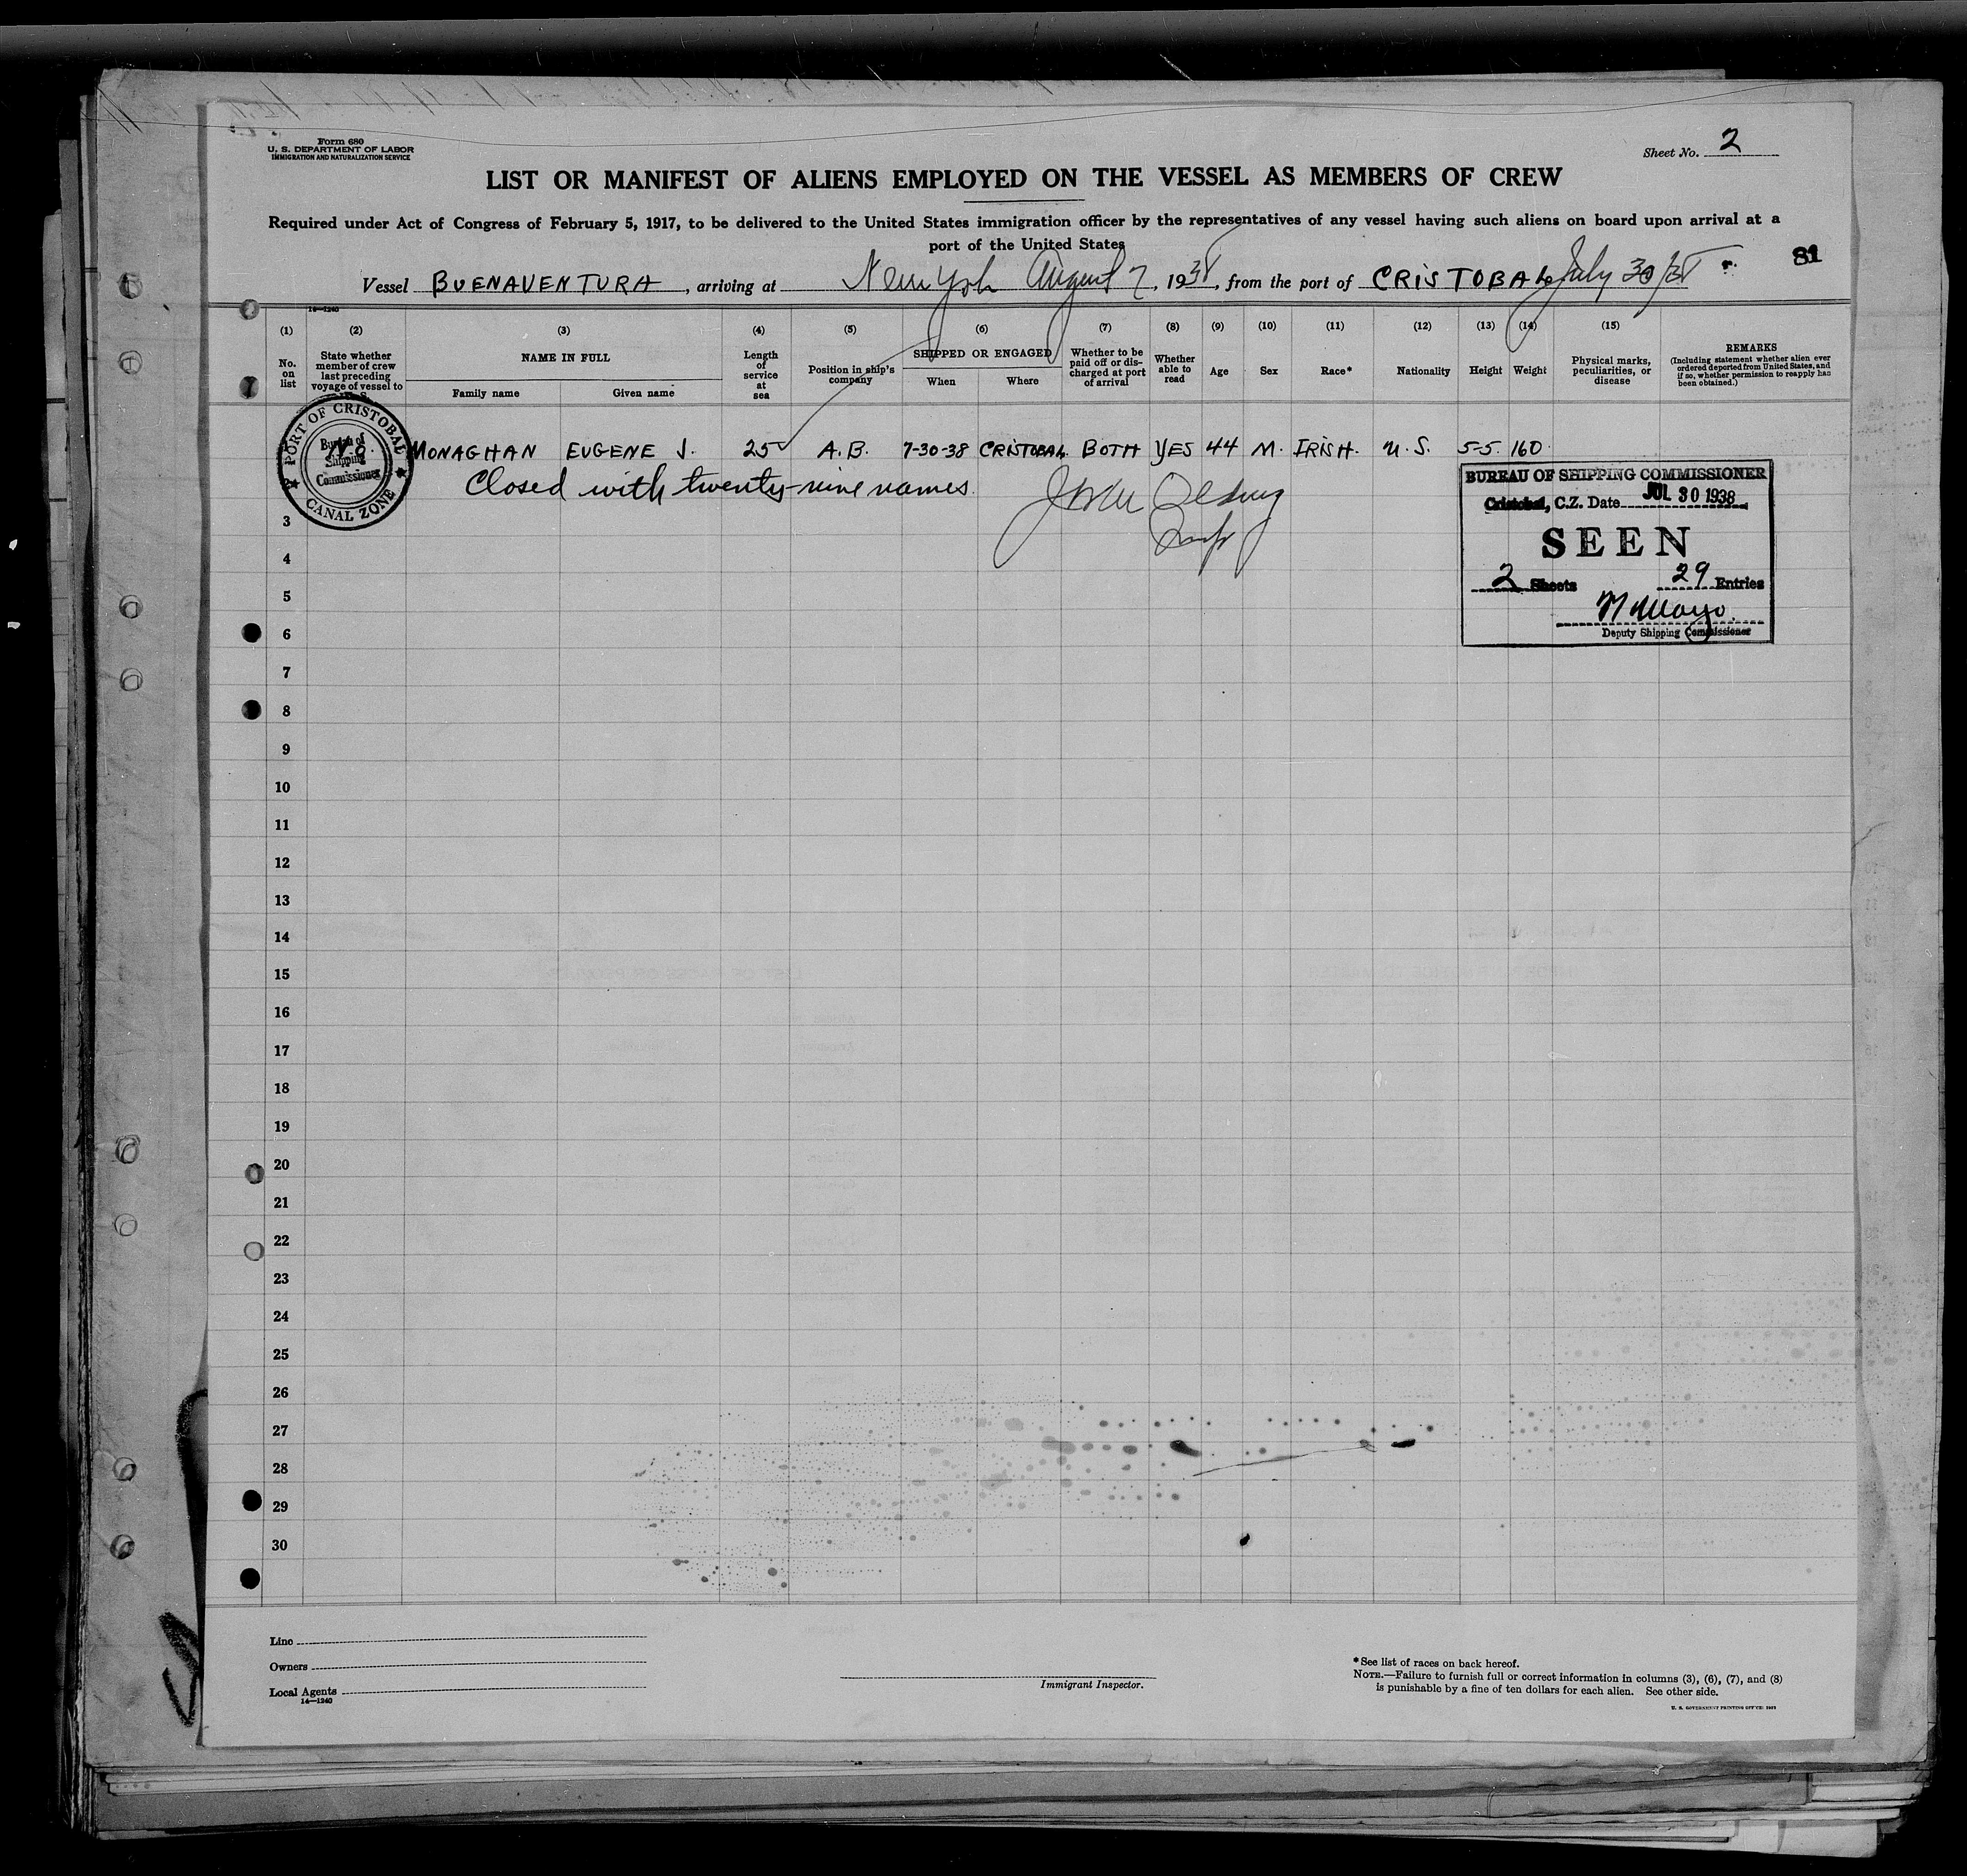 Form 680
U. S. DEPARTMENT OF LABOR
IMMIGRATION AND NATURALIZATION SERVICE
Sheet No. 2
LIST OR MANIFEST OF ALIENS EMPLOYED ON THE VESSEL AS MEMBERS OF CREW
Required under Act of Congress of February 5, 1917, to be delivered to the United States immigration officer by the representatives of any vessel having such aliens on board upon arrival at a
port of the United States
81
Vessel BUENAVENTURA, arriving at New York August 7, 1938, from the port of CRISTOBAL July 30/38
14—1240
(1) (2) (3) (4) (5) (6) (7) (8) (9) (10) (11) (12) (13) (14) (15)
No. on list
State whether member of crew last preceding voyage of vessel to U. S.
NAME IN FULL
Family name Given name
Length of service at sea
Position in ship's company
SHIPPED OR ENGAGED
When Where
Whether to be paid off or discharged at port of arrival
Whether able to read
Age
Sex
Race*
Nationality
Height
Weight
Physical marks, peculiarities, or disease
REMARKS
(Including statement whether alien ever ordered deported from United States, and if so, whether permission to reapply has been obtained.)
PORT OF CRISTOBAL
Bureau of
Shipping
Commissioner
CANAL ZONE
MONAGHAN EUGENE J. 25 A.B. 7-30-38 CRISTOBAL BOTH YES 44 M. IRISH. U.S. 5-5. 160
Closed with twenty-nine names.
BUREAU OF SHIPPING COMMISSIONER
Cristobal, C.Z. Date JUL 30 1938
SEEN
2 Sheets 29 Entries
Deputy Shipping Commissioner
3
4
5
6
7
8
9
10
11
12
13
14
15
16
17
18
19
20
21
22
23
24
25
26
27
28
29
30
Line
Owners
Local Agents
14—1240
Immigrant Inspector.
*See list of races on back hereof.
NOTE.—Failure to furnish full or correct information in columns (3), (6), (7), and (8)
is punishable by a fine of ten dollars for each alien. See other side.